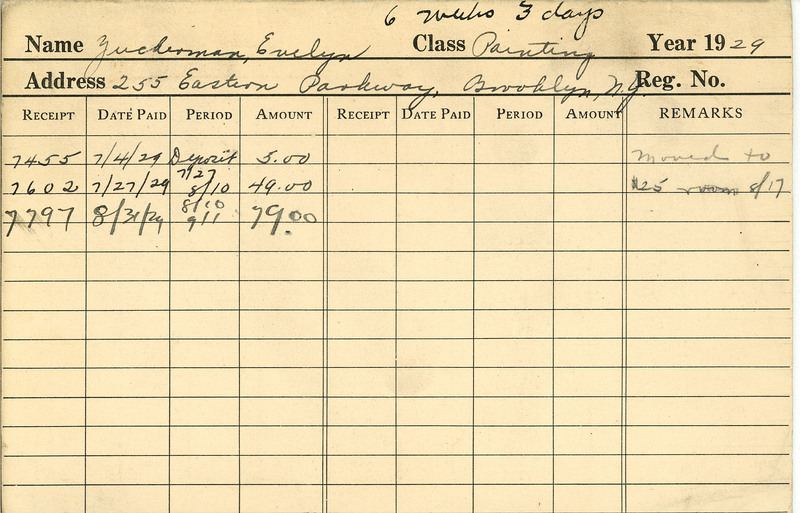 6 weeks 3 days
Name Zuckerman, Evelyn Class Painting Year 1929
Address 255 Eastern Parkway, Brooklyn, N.Y. Reg. No.
RECEIPT DATE PAID PERIOD AMOUNT RECEIPT DATE PAID PERIOD AMOUNT REMARKS
7455 7/4/29 Deposit 5.00 Moved to
7/27
7602 7/27/29 8/10 49.00 $25 room 8/17
8/10
7797 8/31/29 9/11 79.00